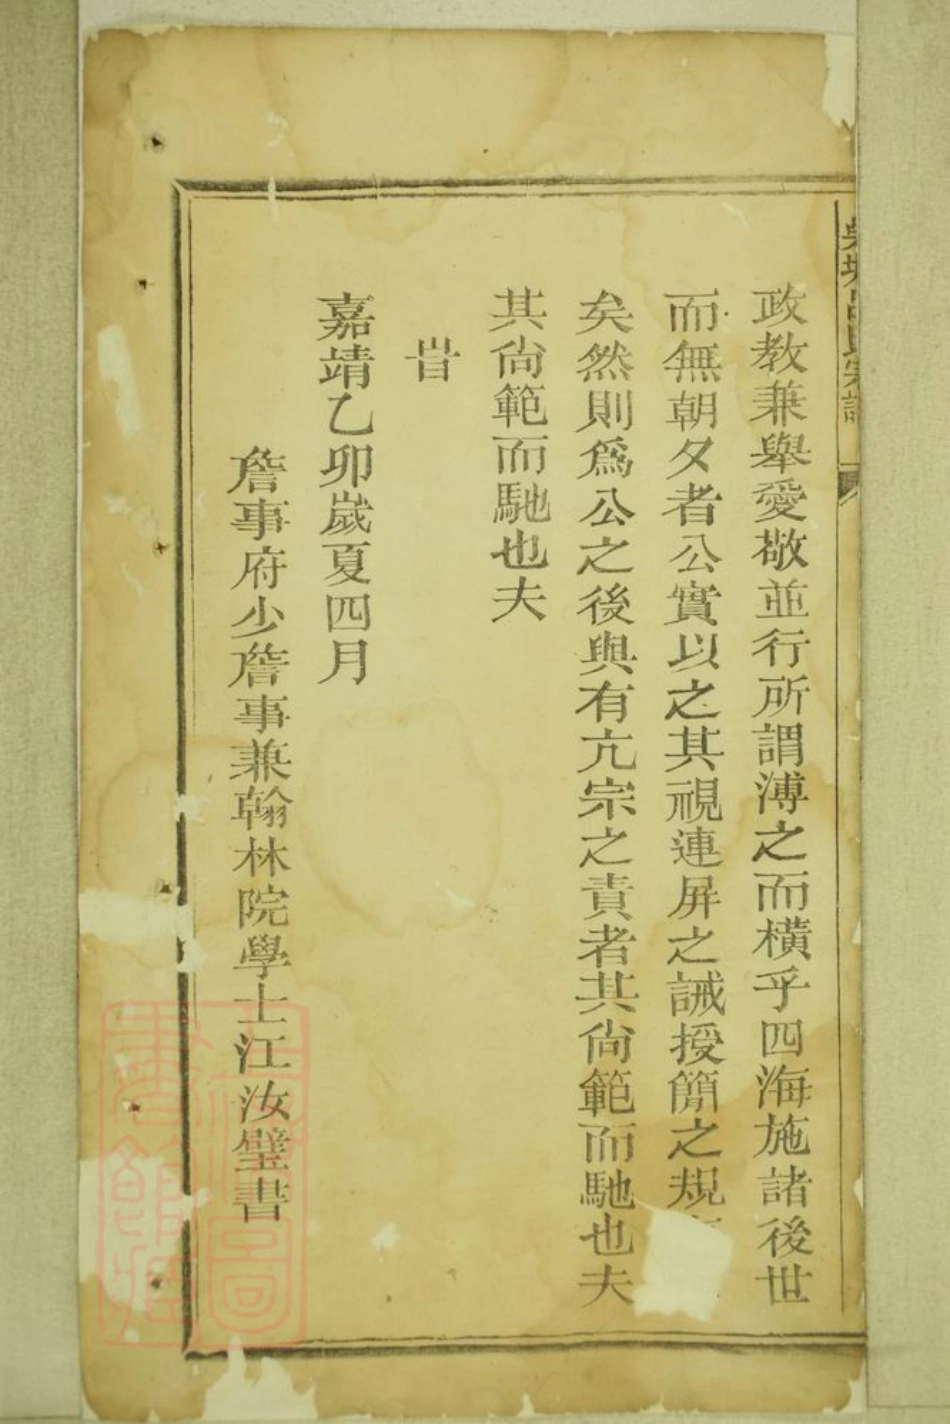 呂氏宗譜
政教兼舉愛敬並行所謂溥之而橫乎四海施諸後世
而無朝夕者公實以之其視連屏之誡授簡之規
矣然則爲公之後與有亢宗之責者其尙範而馳也夫
其尙範而馳也夫
旹
嘉靖乙卯歲夏四月
詹事府少詹事兼翰林院學士江汝璧書